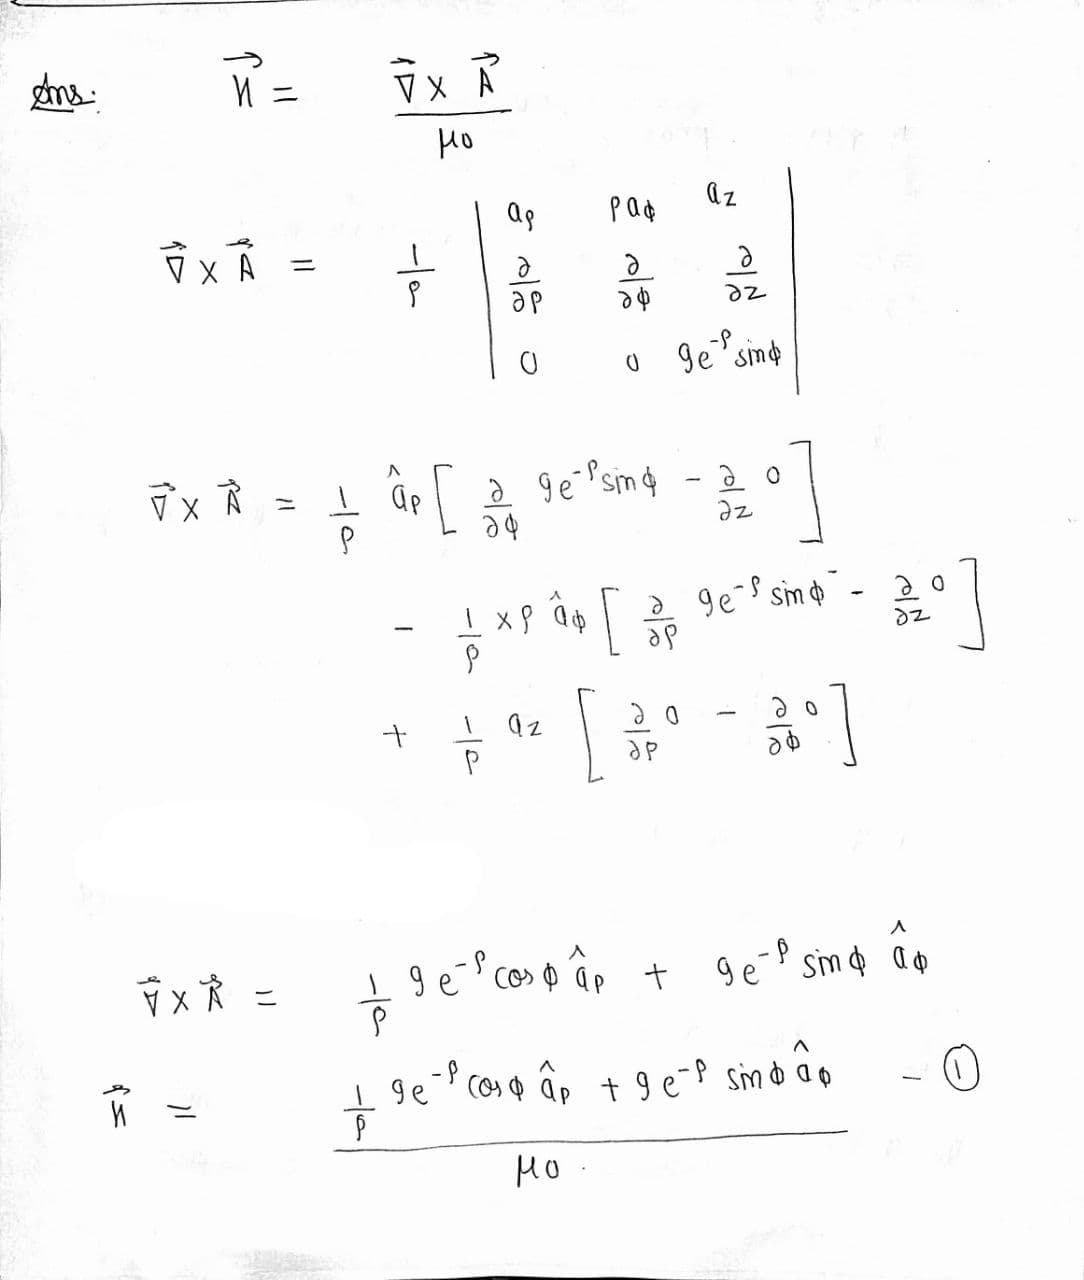 Ans: H⃗ = ∇⃗ × A⃗ / μ0
∇⃗ × A⃗ = 1/ρ | aρ ρaφ az |
| ∂/∂ρ ∂/∂φ ∂/∂z |
| 0 0 9e^-ρ sinφ |
∇⃗ × A⃗ = 1/ρ âρ [ ∂/∂φ 9e^-ρ sinφ - ∂/∂z 0 ]
- 1/ρ × ρ âφ [ ∂/∂ρ 9e^-ρ sinφ - ∂/∂z 0 ]
+ 1/ρ az [ ∂/∂ρ 0 - ∂/∂φ 0 ]
∇⃗ × A⃗ = 1/ρ 9e^-ρ cosφ âρ + 9e^-ρ sinφ âφ
H⃗ = 1/ρ 9e^-ρ cosφ âρ + 9e^-ρ sinφ âφ / μ0 - ①